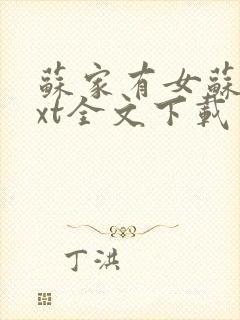 蘇家有女蘇
xt全文下載
丁洪